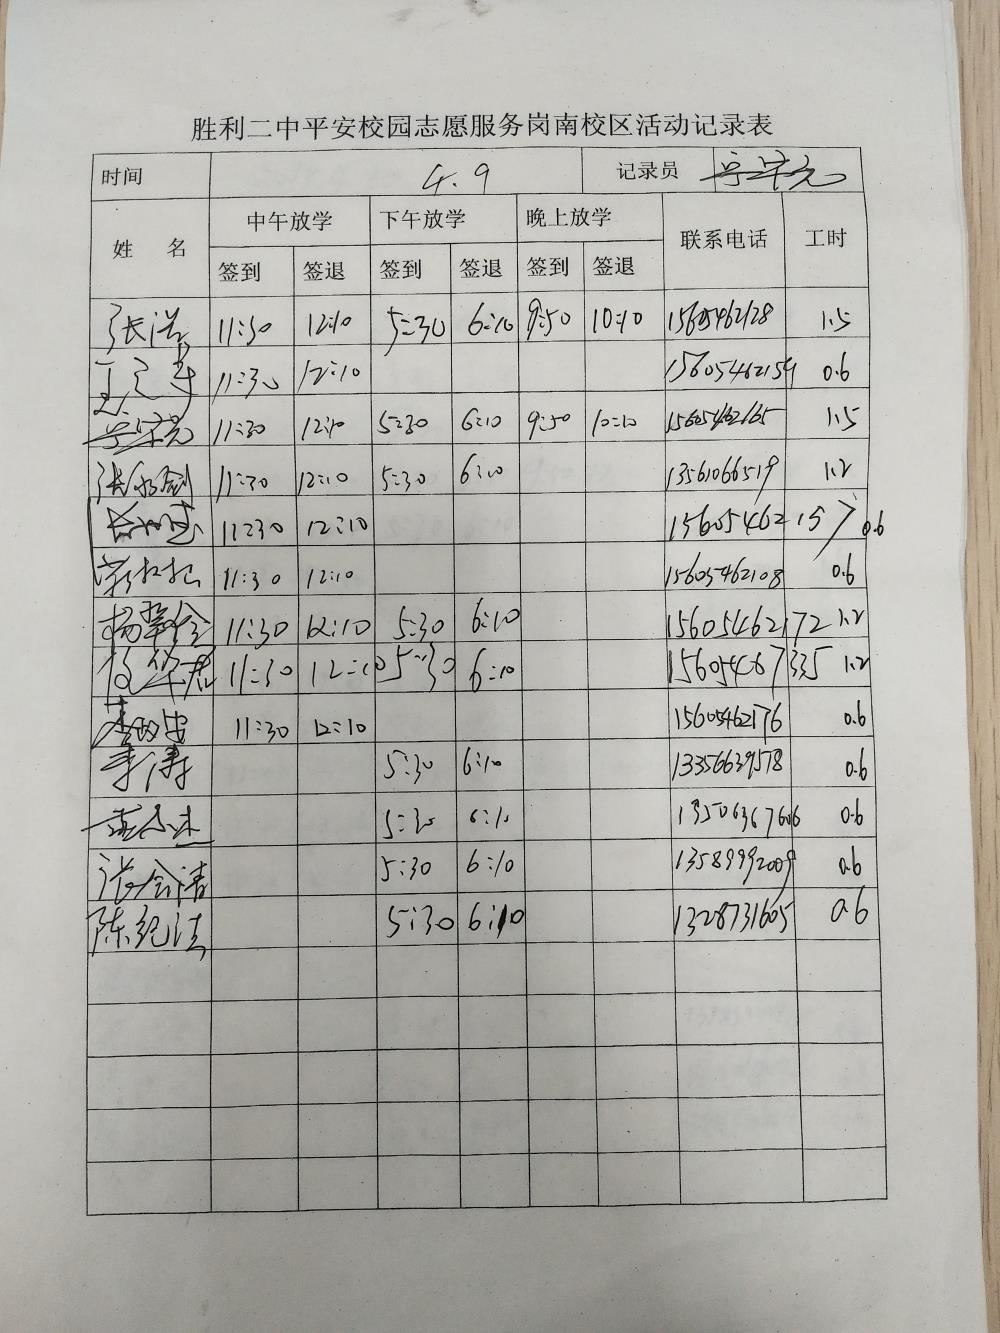 胜利二中平安校园志愿服务岗南校区活动记录表
时间 4.9 记录员
姓 名 中午放学 下午放学 晚上放学 联系电话 工时
签到 签退 签到 签退 签到 签退
张浩 11:30 12:10 5:30 6:10 9:50 10:10 15605462128 1.5
11:30 12:10 15605462159 0.6
11:30 12:10 5:30 6:10 9:50 10:10 15605462165 1.5
11:30 12:10 5:30 6:10 13561066519 1.2
11:30 12:10 15605462157 0.6
11:30 12:10 15605462108 0.6
11:30 12:10 5:30 6:10 15605462172 1.2
11:30 12:10 5:30 6:10 15605467335 1.2
11:30 12:10 15605462176 0.6
李涛 5:30 6:10 13356639578 0.6
5:30 6:10 0.6
张会清 5:30 6:10 13589992009 0.6
陈纪法 5:30 6:10 1328731605 0.6